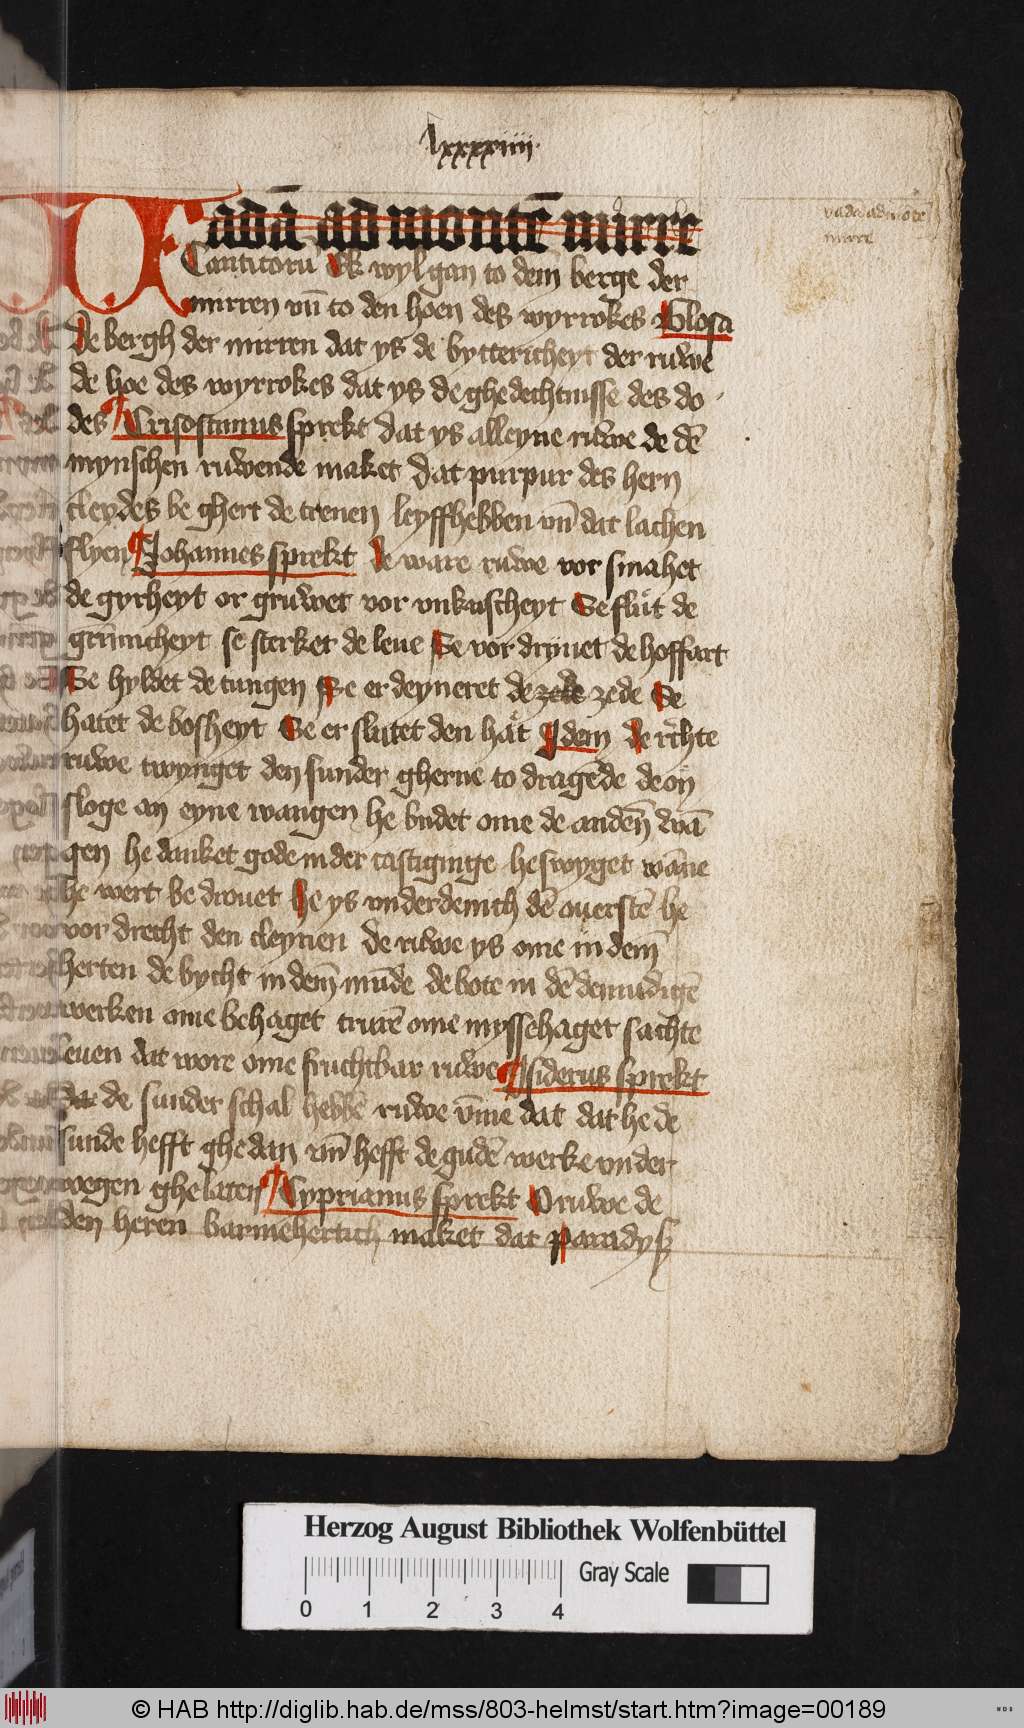 lxxxxiiii
Vadā ad montē mirre
vada ad mōtē
mirre
Canticorū Ik wyl gan to dem berge der
mirren vn̄ to den hoen des wyrrokes Glosa
De bergh der mirren dat ys de bytticheyt der ruwe
de hoe des wyrrokes dat ys de ghedechtnisse des do
des Crisostimus sprekt dat ys alleyne ruwe de dē
mynschen ruwende maket dat purpur des hern
cleydes be ghert de trenen leyffhebben vn̄ dat lachen
flyen Johannes sprekt de ware ruwe vor smahet
de gyrheyt or gruwet vor vnkuscheyt Se flut de
grimicheyt se sterket de leue Se vor dryuet de hoffart
Se hyldet de tungen Se er deyneret de zede zede Se
hatet de bosheyt Se er slutet den hat Idem de rechte
ruwe twynget den sunder gherne to dragēde de on
sloge an eyne wangen he budet ome de andern wā
gen he danket gode in der castiginge he swyget wāne
he wert be drouet he ys vnderdenich dē ouerstē he
vor drecht den cleynen de ruwe ys ome in dem
herten de bycht in dem mūde de bote in dē demudigē
werken ome behaget trurē ome myssehaget sachte
leuen dat wore ome fruchtbar ruwe Isiderus sprekt
dat de sunder schal hebbē ruwe vm̄e dat dat he de
sunde hefft ghe dan vn̄ hefft de gudē werke vnder
wegen ghe laten Cyprianus sprekt O ruwe de
den heren barmehertich maket dat paradyß
Herzog August Bibliothek Wolfenbüttel
Gray Scale
0 1 2 3 4
© HAB http://diglib.hab.de/mss/803-helmst/start.htm?image=00189